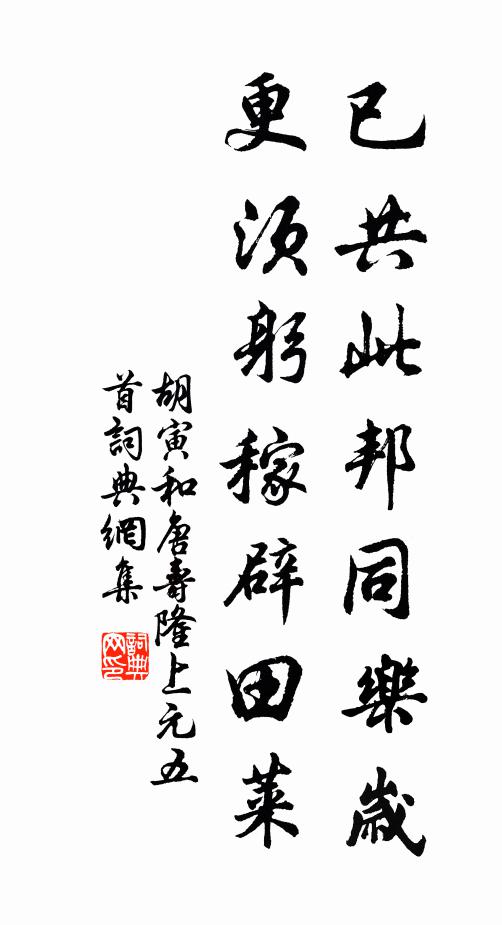 已共此邦同樂歲
更須躬稼辟田萊
胡寅和唐壽隆上元五
首詞典網集
詞典网印